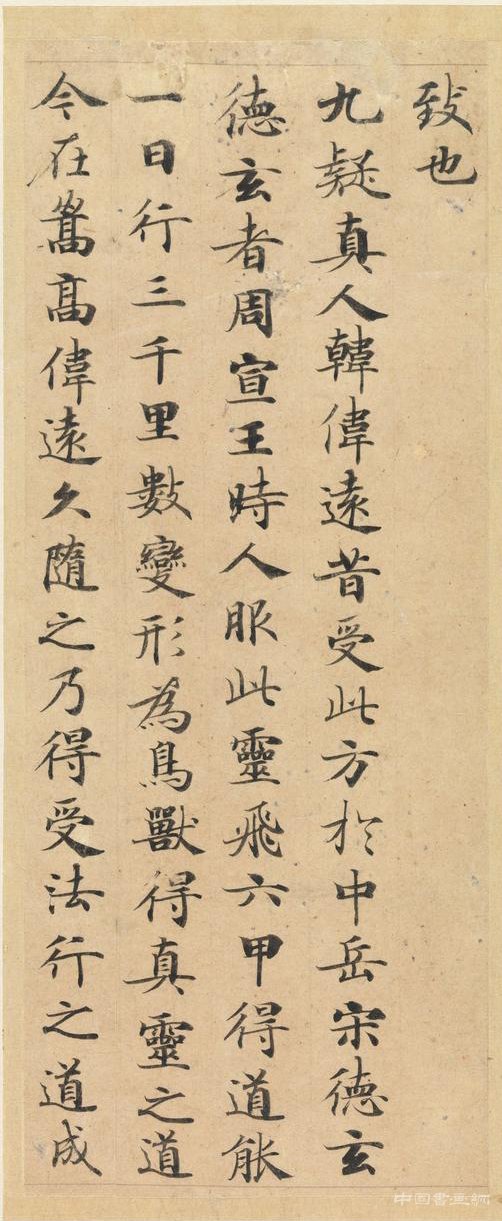 致也
九疑真人韓偉遠昔受此方於中岳宋德玄
德玄者周宣王時人服此靈飛六甲得道能
一日行三千里數變形為鳥獸得真靈之道
今在嵩高偉遠久隨之乃得受法行之道成
中国書画網